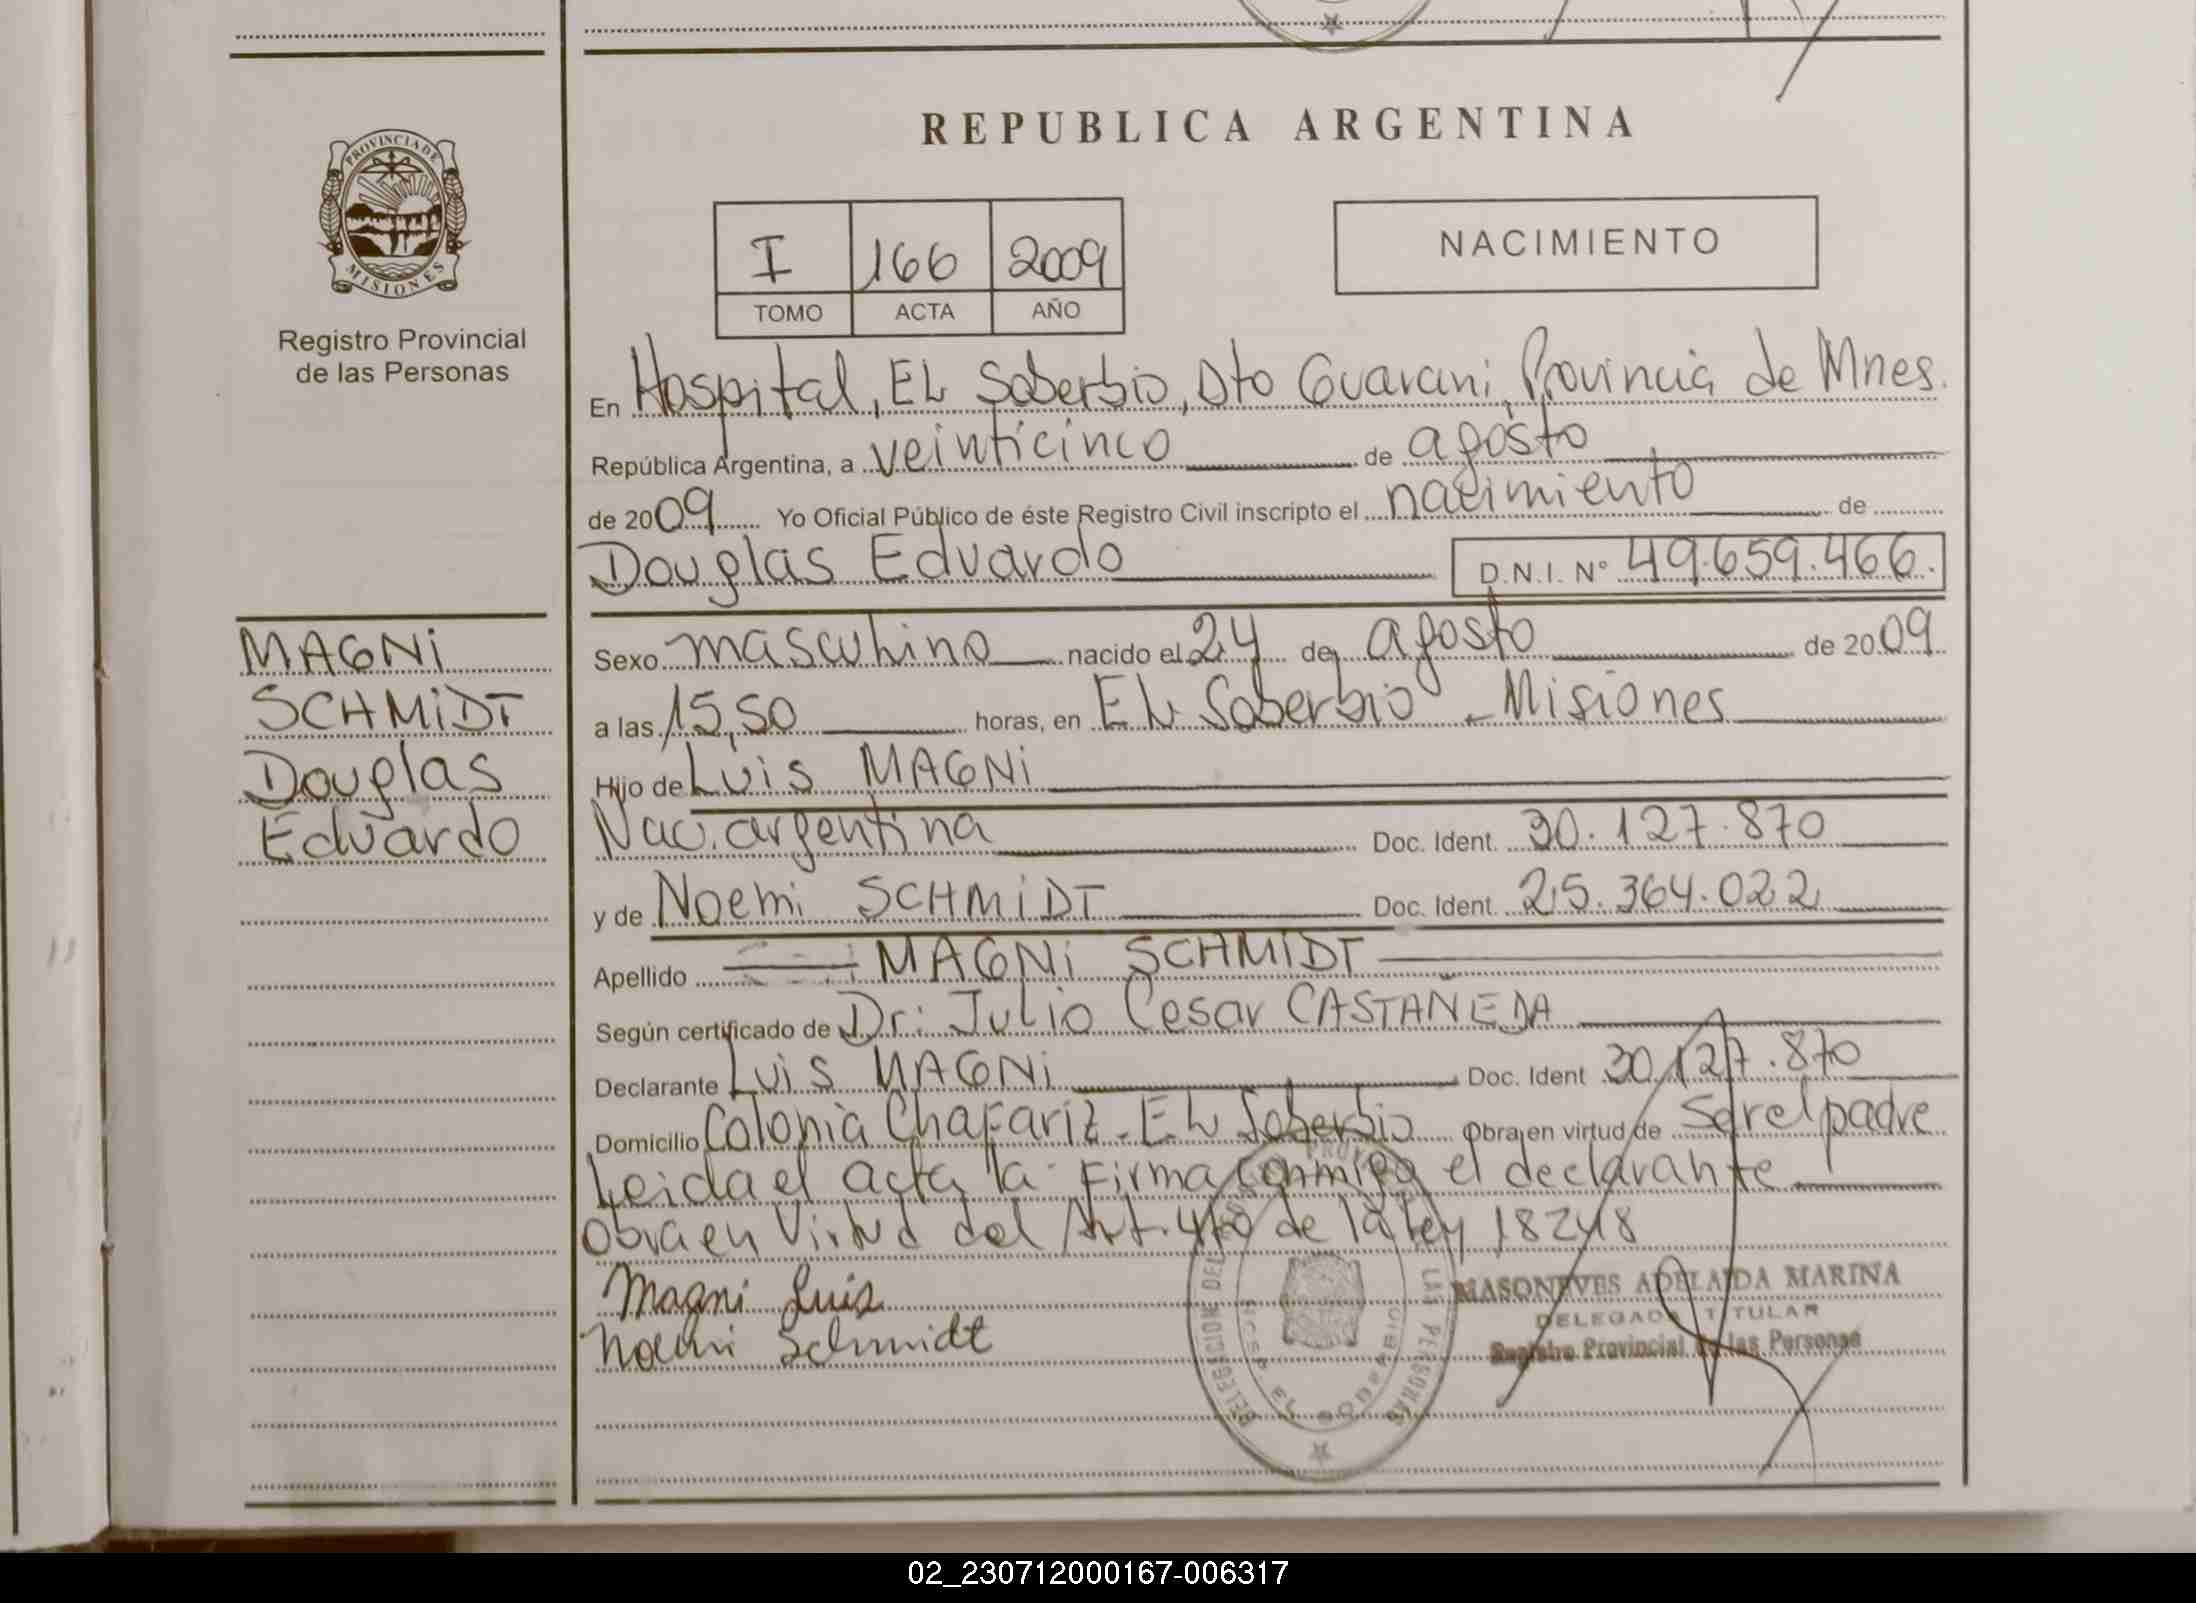 PROVINCIA DE
MISIONES
Registro Provincial
de las Personas
MAGNI
SCHMIDT
Douglas
Eduardo
REPUBLICA ARGENTINA
I 166 2009
TOMO ACTA AÑO
NACIMIENTO
En Hospital, EL Soberbio, Dto Guarani, Provincia de Mnes.
República Argentina, a veinticinco de agosto
de 2009 Yo Oficial Público de éste Registro Civil inscripto el nacimiento de
Douglas Eduardo D.N.I. Nº 49.659.466.
Sexo masculino nacido el 24 de agosto de 2009
a las 15,50 horas, en EL Soberbio - Misiones
Hijo de Luis MAGNI
Nac. argentina Doc. Ident. 30.127.870
y de Noemi SCHMIDT Doc. Ident. 25.364.022
Apellido MAGNI SCHMIDT
Según certificado de Dr: Julio Cesar CASTAÑEDA
Declarante Luis MAGNI Doc. Ident 30.127.870
Domicilio Colonia Chafariz - EL Soberbio Obra en virtud de ser el padre
Leida el acta la firma conmigo el declarante
Obra en Virtud del Art. 4to de la ley 18248
Magni Luis
Noemi Schmidt
MASONEVES ADELAIDA MARINA
DELEGADA TITULAR
Registro Provincial de las Personas
EL SOBERBIO
02_230712000167-006317